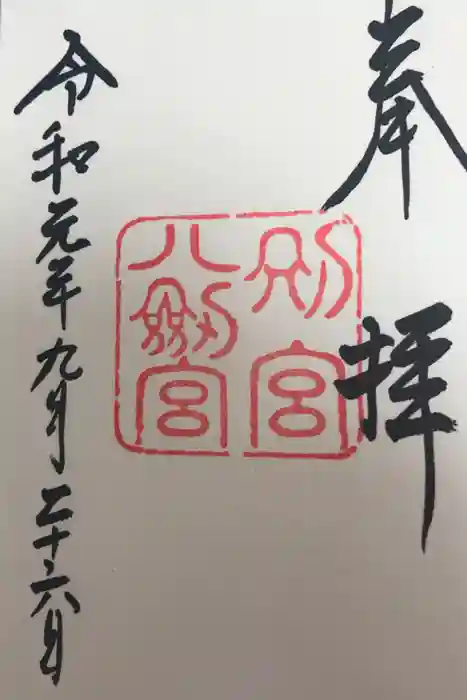 奉拝
別宮
八剱宮
令和元年九月二十六日